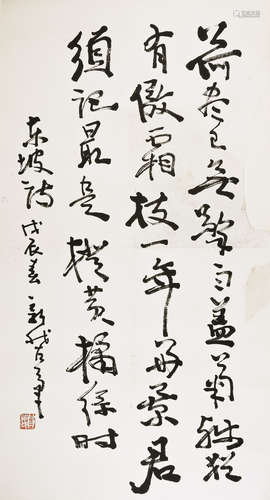 荷尽已无擎雨盖菊残犹
有傲霜枝一年好景君
须记最是橙黄橘绿时
东坡诗 戊辰春 新我左笔